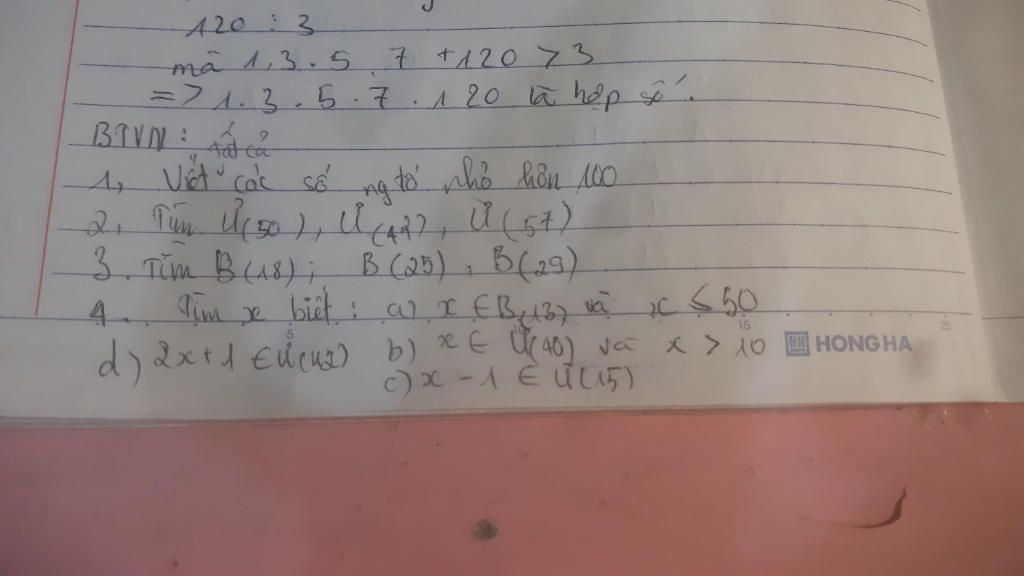 120 : 3
mà 1.3.5.7 +120 > 3
=> 1.3.5.7.120 là hợp số.
BTVN: tất cả
1, Viết các số ng tố nhỏ hơn 100
2, Tìm Ư(50), Ư(42), Ư(57)
3. Tìm B(18); B(25), B(29)
4. Tìm x biết: a) x ∈ B(13) và x ≤ 50
d) 2x+1 ∈ Ư(42) b) x ∈ Ư(40) và x > 10
c) x - 1 ∈ Ư(15)
5 15 20
HONG HA